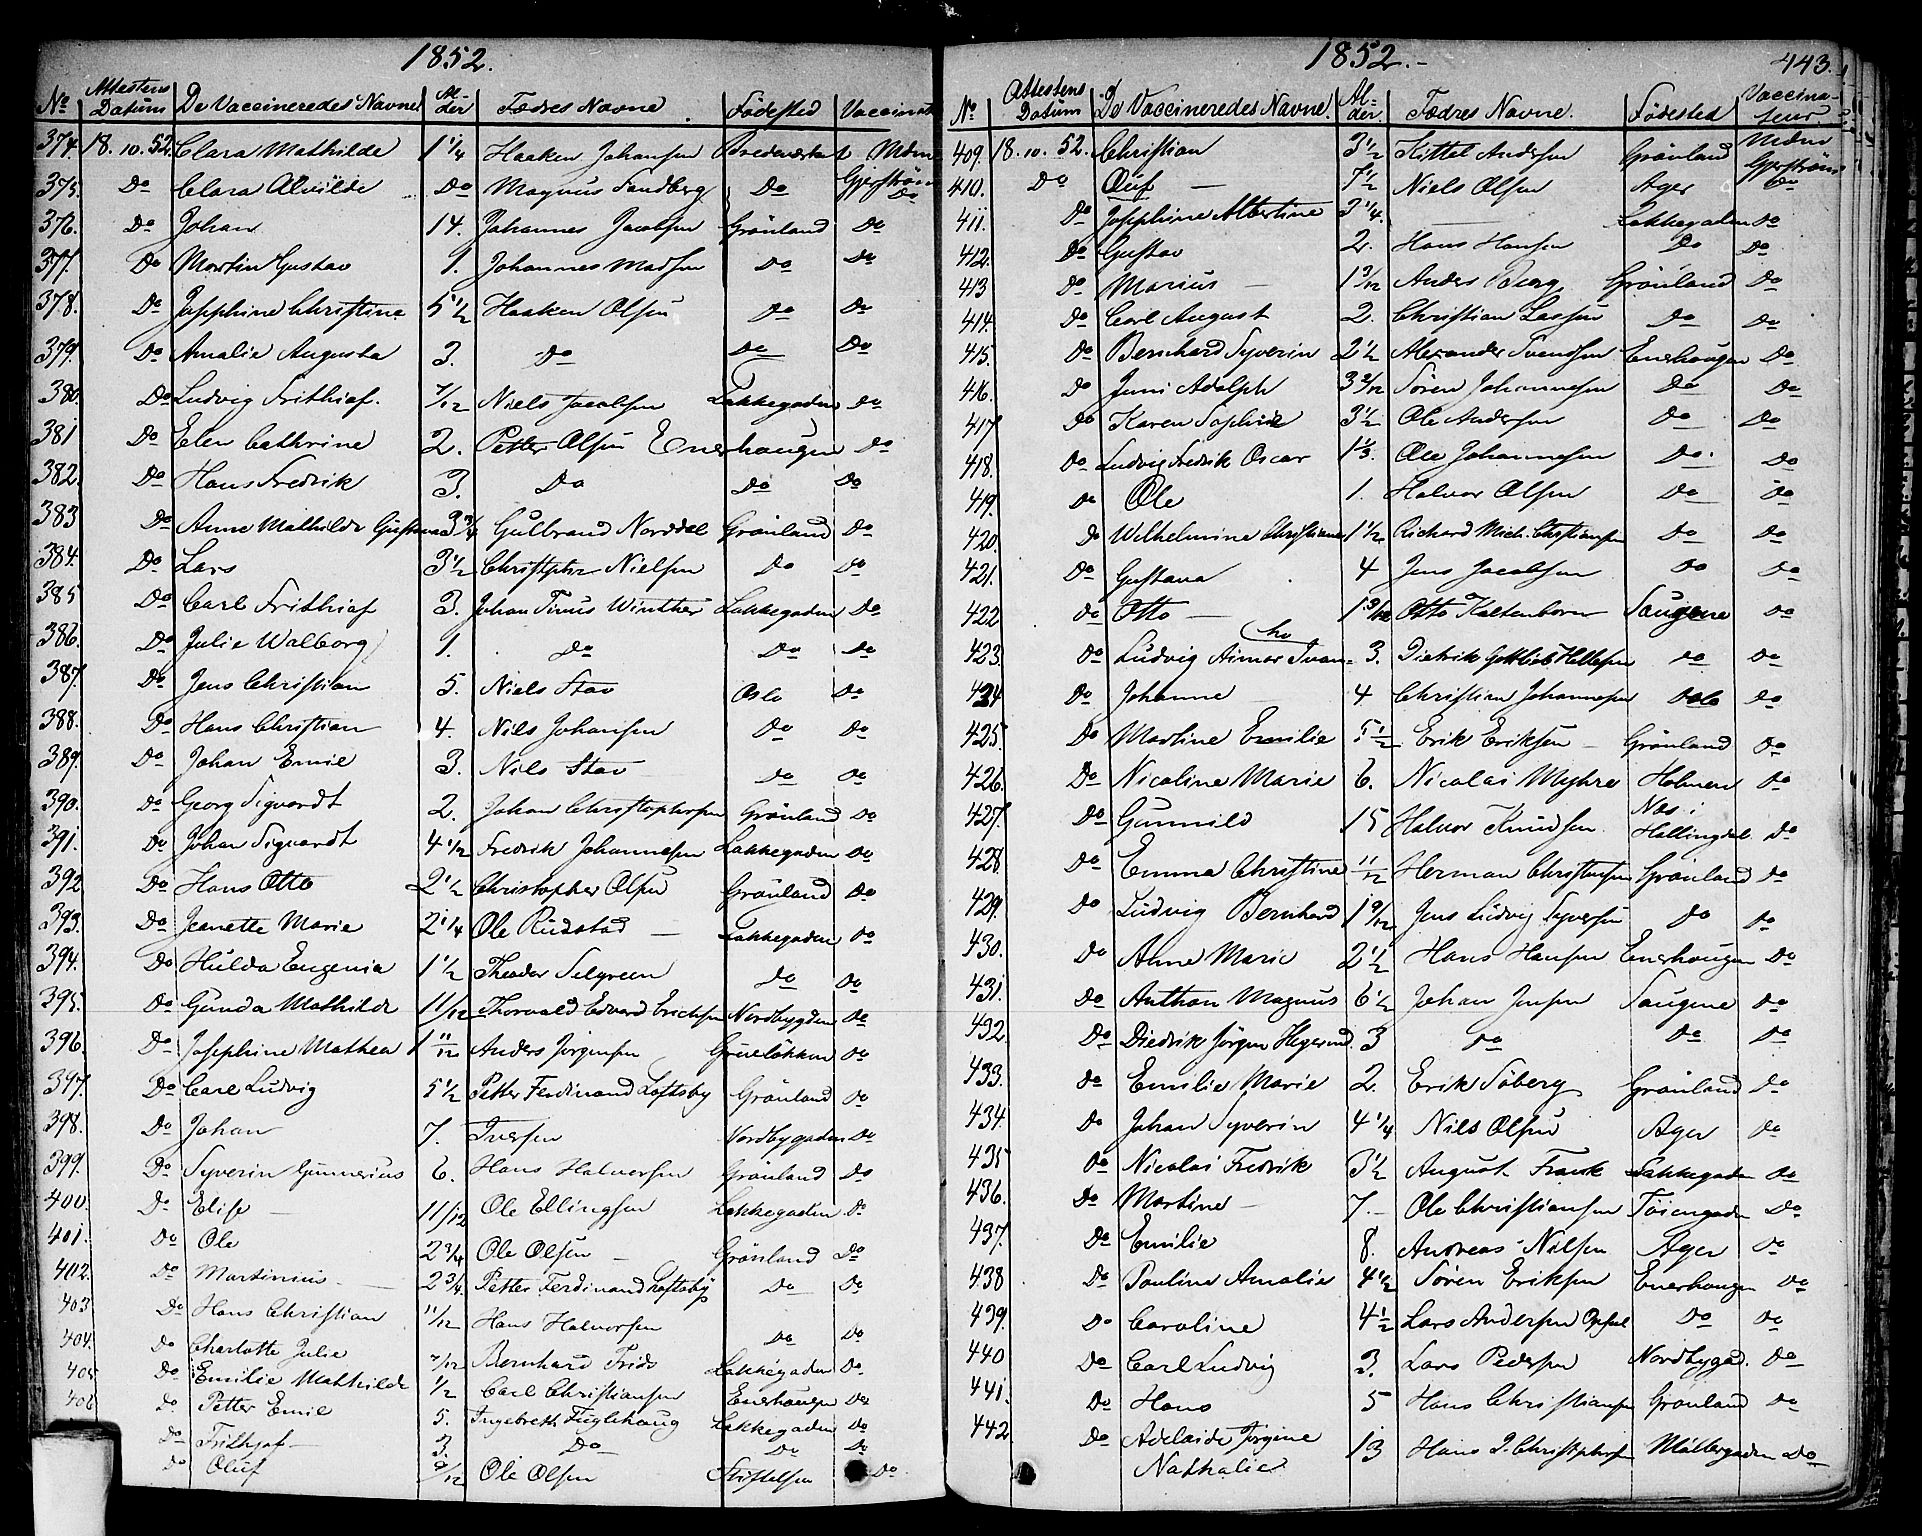 1852.
No Attestens Datum De Vaccineredes Navne Alder Fædres Navne Fødested Vaccinat
374. 18.10.52. Clara Mathilde 1 1/4 Haaken Johansen Mdm
375. Do Clara Alvilde Do Magnus Sandberg Do Gjerstrøm Do
376. Do Johan 14. Johannes Jacobsen Grønland Do
377. Do Martin Gustav 1. Johannes Madsen Do Do
378. Do Josephine Christine 5 1/2 Haaken Olsen Do Do
379. Do Amalie Augusta 3. Do Do Do
380. Do Ludvig Frithiof. 7/12 Niels Jacobsen Lakkegaden Do
381 Do Elen Cathrine 2. Petter Olsen Enerhaugen Do
382. Do Hans Fredrik 3. Do Do Do
383 Do Anne Mathilde Gustava 3 3/4 Gulbrand Norddal Grønland Do
384. Do Lars 3 1/2 Christopher Nielsen Do Do
385 Do Carl Frithiof 3. Johan Tinus Winther Lakkegaden Do
386. Do Julie Walborg 1. Do Do Do
387. Do Jens Christian 5. Niels Stav Oslo Do
388. Do Hans Christian 4. Nils Johansen Do Do
389. Do Johan Emil 3. Nils Stav Do Do
390. Do Georg Sigvardt 2. Johan Christophersen Grønland Do
391. Do Johan Sigvardt 4 1/2 Fredrik Johannesen Lakkegaden Do
392 Do Hans Otto 2 1/2 Christopher Olsen Grønland Do
393. Do Jeanette Marie 2 1/4 Ole Rudstad Lakkegaden Do
394. Do Hulda Eugenia 1 1/2 Theodor Selgreen Do Do
395. Do Gunda Mathilde 11/12 Thorvald Edvard Erichsen Nordbygden Do
396. Do Josephine Mathea 1 11/12 Anders Jørgensen Grueløkken Do
397. Do Carl Ludvig 5 1/2 Petter Ferdinand Loftsby Grønland Do
398. Do Johan 7. Iversen Nordbygaden Do
399. Do Syverin Gunnerius 6. Hans Halvorsen Grønland Do
400. Do Elise 11/12 Ole Ellingsen Lakkegaden Do
401. Do Ole 2 3/4 Ole Olsen Grønland Do
402. Do Martinius 2 3/4. Petter Ferdinand Loftsby Do Do
403 Do Hans Christian 11/12 Hans Halvorsen Do Do
404. Do Charlotte Julie 7/12 Bernhard Friis Lakkegaden Do.
405 Do Emilie Mathilde 1/2 Carl Christiansen Enerhaugen Do
406 Do Petter Emil 5. Ingebreth Fuglehaug Lakkegaden Do
Do Frithjof 3. Do Do Do
Do Oluf 9/12 Ole Olsen Stiftelsen Do.
1852. 443.
No Attestens Datum De Vaccineredes Navne. Alder. Fædres Navne. Fødested Vaccinateur
409. 18.10.52. Christian 3 1/2 Kittel Andersen Grønland Mdm Gjerstrøm
410. Do Oluf 7 1/2 Niels Olsen Ager Do
411. Do Josephine Albertine 3 1/4. Lakkegaden Do
412. Do Gustav 2. Hans Hansen Do Do
413 Do Marius 1 9/12 Anders Berg Grønland Do
414. Do Carl August 2. Christian Lassen Do Do
415. Do Bernhard Syverin 2 1/2 Alexander Svendsen Enerhaugen Do
416. Do Juni Adolph 3 9/12 Søren Johannesen Do Do
417 Do Karen Sophie 3 1/2 Ole Andersen Do Do
418. Do Ludvig Fredrik Oscar 1 1/3. Ole Johannesen Do. Do
419. Do Ole 1. Halvor Olsen Do Do
420. Do Wilhelmine Christiane 1 1/2 Richard Mich. Christiansen Do Do
421. Do Gustava 4 Jens Jacobsen Do Do
422 Do Otto 1 9/12 Otto Kaltenborn Saugene Do
423. Do Ludvig Aimar Ivan 3. Diedrik Gottlieb Hellesen Do Do
424 Do Johanne 4 Christian Johannesen Oslo Do
425. Do Martine Emilie 5 1/2 Erik Eriksen Grønland Do
426. Do Nicoline Marie 6. Nicolai Myhre Holmen Do
427. Do Gunnild 15 Halvor Knudsen Næs i Hallingdal Do
428. Do Emma Christine 11/12 Herman Christensen Grønland Do
429. Do Ludvig Bernhard 1 9/12 Jens Ludvig Syversen Do Do
430. Do Anne Marie 2 1/2 Hans Hansen Enerhaugen Do
431. Do Anthon Magnus 6 1/2 Johan Jensen Saugene Do
432 Do Diedrik Jørgen Hegerund 3 Do Do Do
433. Do Emilie Marie 2. Erik Søberg Grønland Do
434. Do Johan Syverin 4 1/4 Nils Olsen Ager Do
435 Do Nicolai Fredrik 3 1/2 August Frank Lakkegaden Do
436. Do Martine 7. Ole Christiansen Tøiengaden Do
437. Do Emilie 8. Andreas Nilsen Ager Do
438 Do Pauline Amalie 4 1/2 Søren Eriksen Enerhaugen Do
439. Do Caroline 4 1/2 Lars Andersen Opsal Do Do
440 Do Carl Ludvig 3. Lars Pedersen Nordbygad. Do
441. Do Hans 5 Hans Christiansen Grønland Do
442 Do Adelaide Jørgine 13 Hans J. Christophersen Møllergaden Do
Nathalie